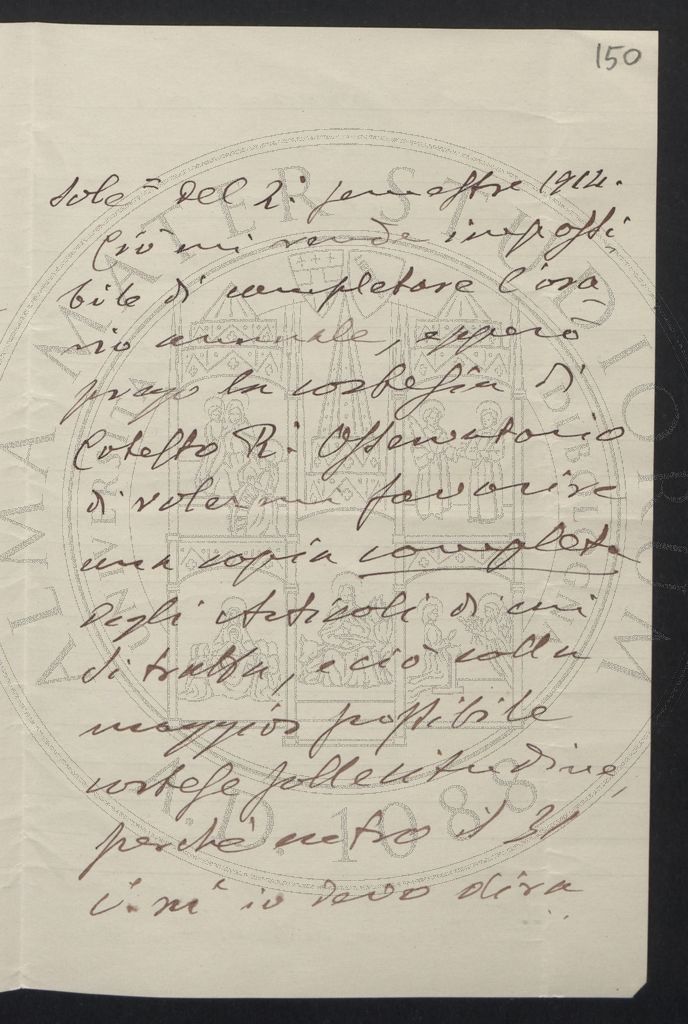 150
sole= del 2.° semestre 1914.
Ciò mi rende impossi
bile di completare l'ora
rio annuale, epperò
prego la cortesia di
Cotesto R.° Osservatorio
di volermi favorire
una copia completa
degli Articoli di cui
si tratta, e ciò colla
maggior possibile
cortese sollecitudine,
perché entro il 31
io devo
ALMA MATER STUDIORUM
A.D. 1088